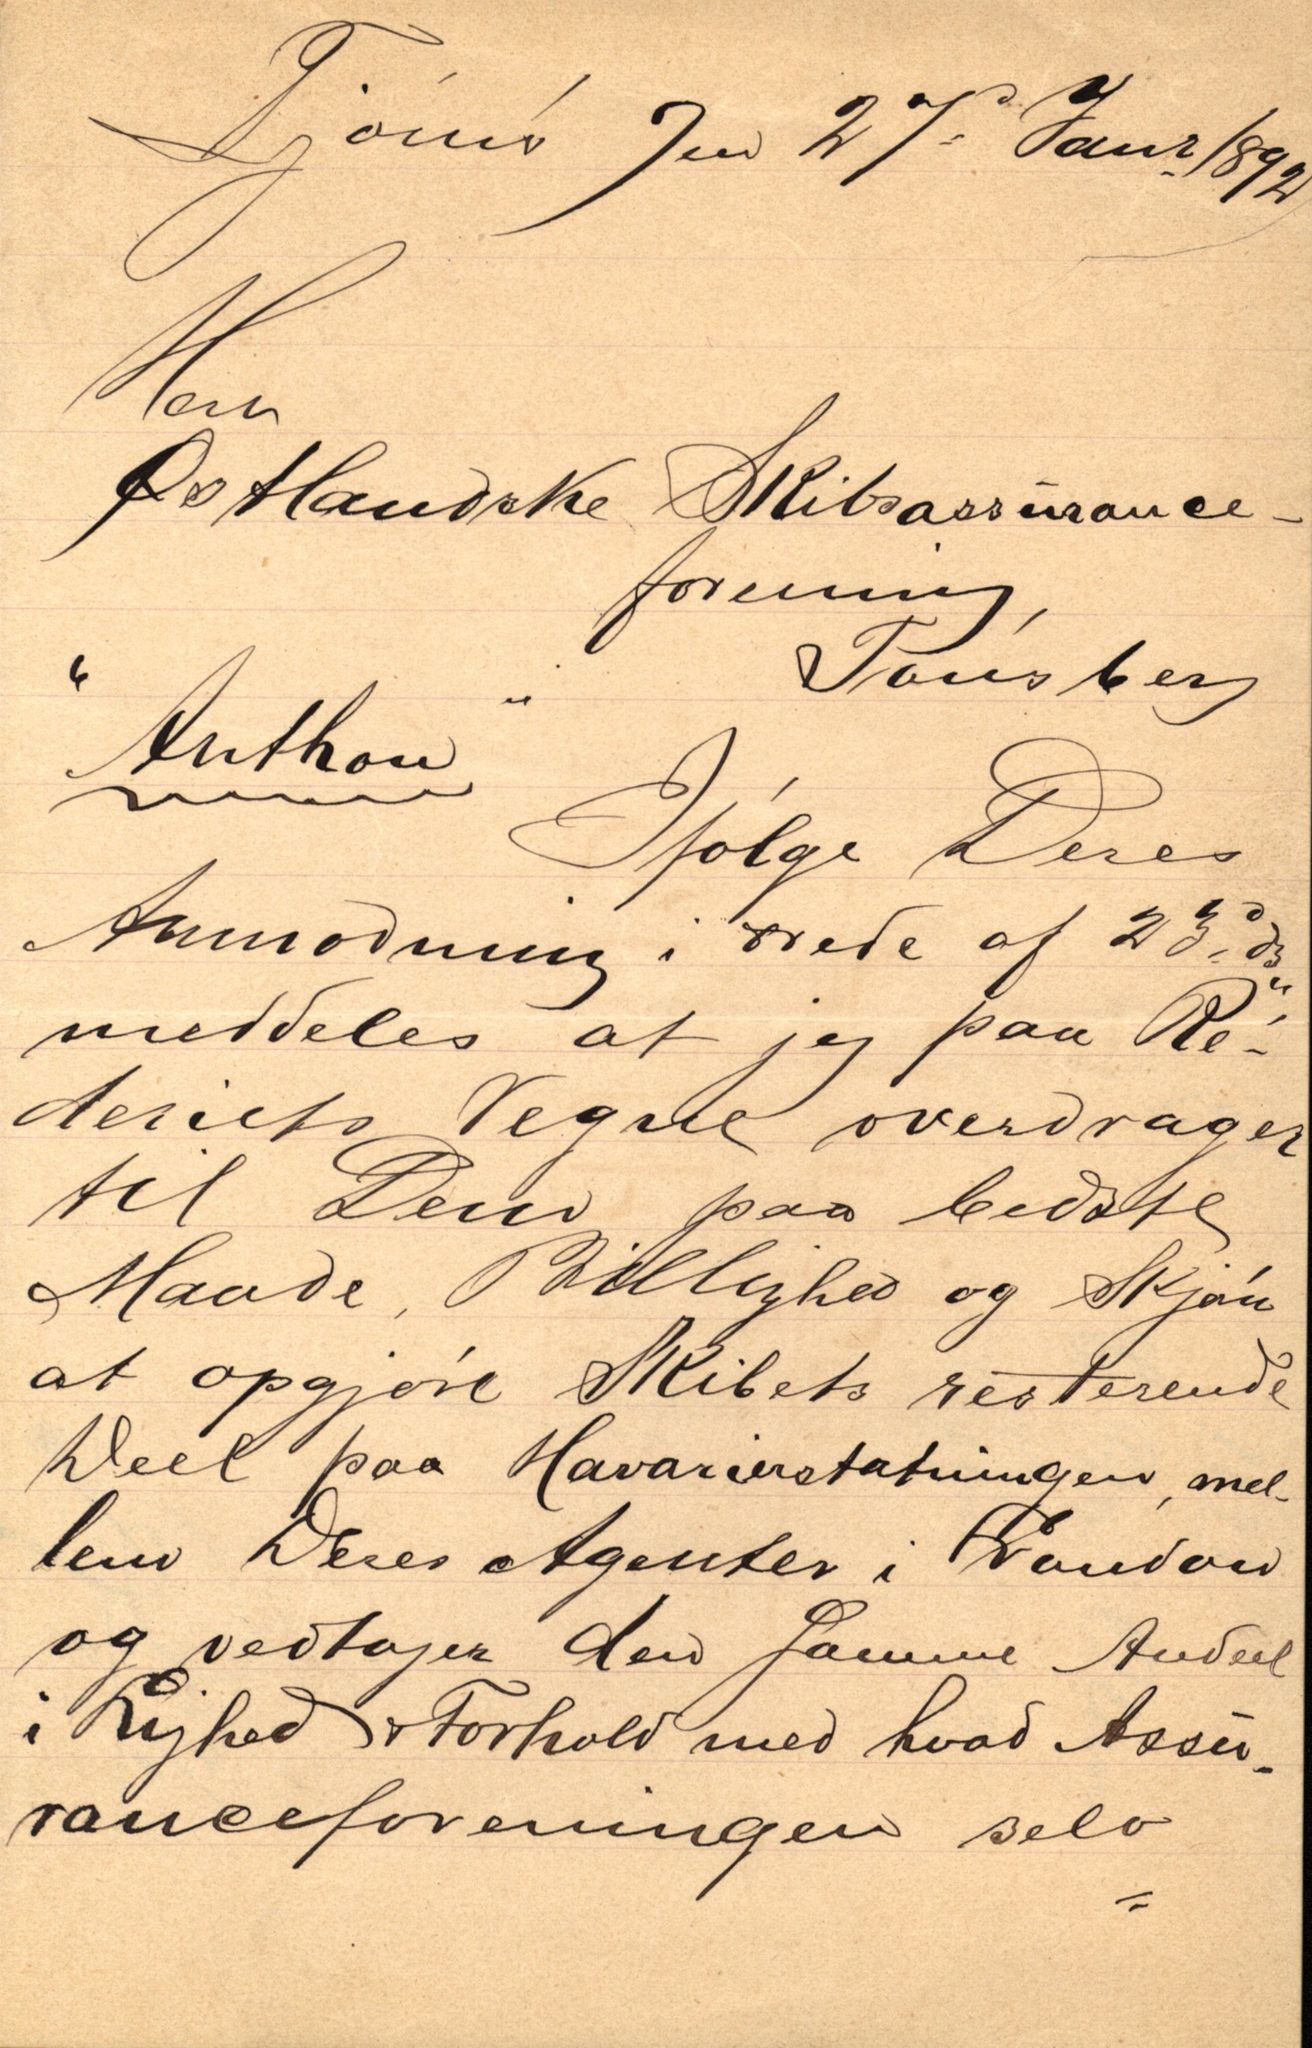 Tjömö den 27de Janr 1892
Herr
Østlandske Skibsassurance-
forening,
Tönsberg
"Anthon"
Ifølge Deres
Anmodning i brede af 23de ds
meddeles at jeg paa Re-
deriets Vegne overdrager
til Dem paa bedste
Maade, Billighed og Skjön
at opgjöre Skibets resterende
Deel paa Havarierstatningen, mel-
lem Deres Agenter i London
og vedtager den samme Andeel
i Lighed & Forhold med hvad Assu-
ranceforeningen selv